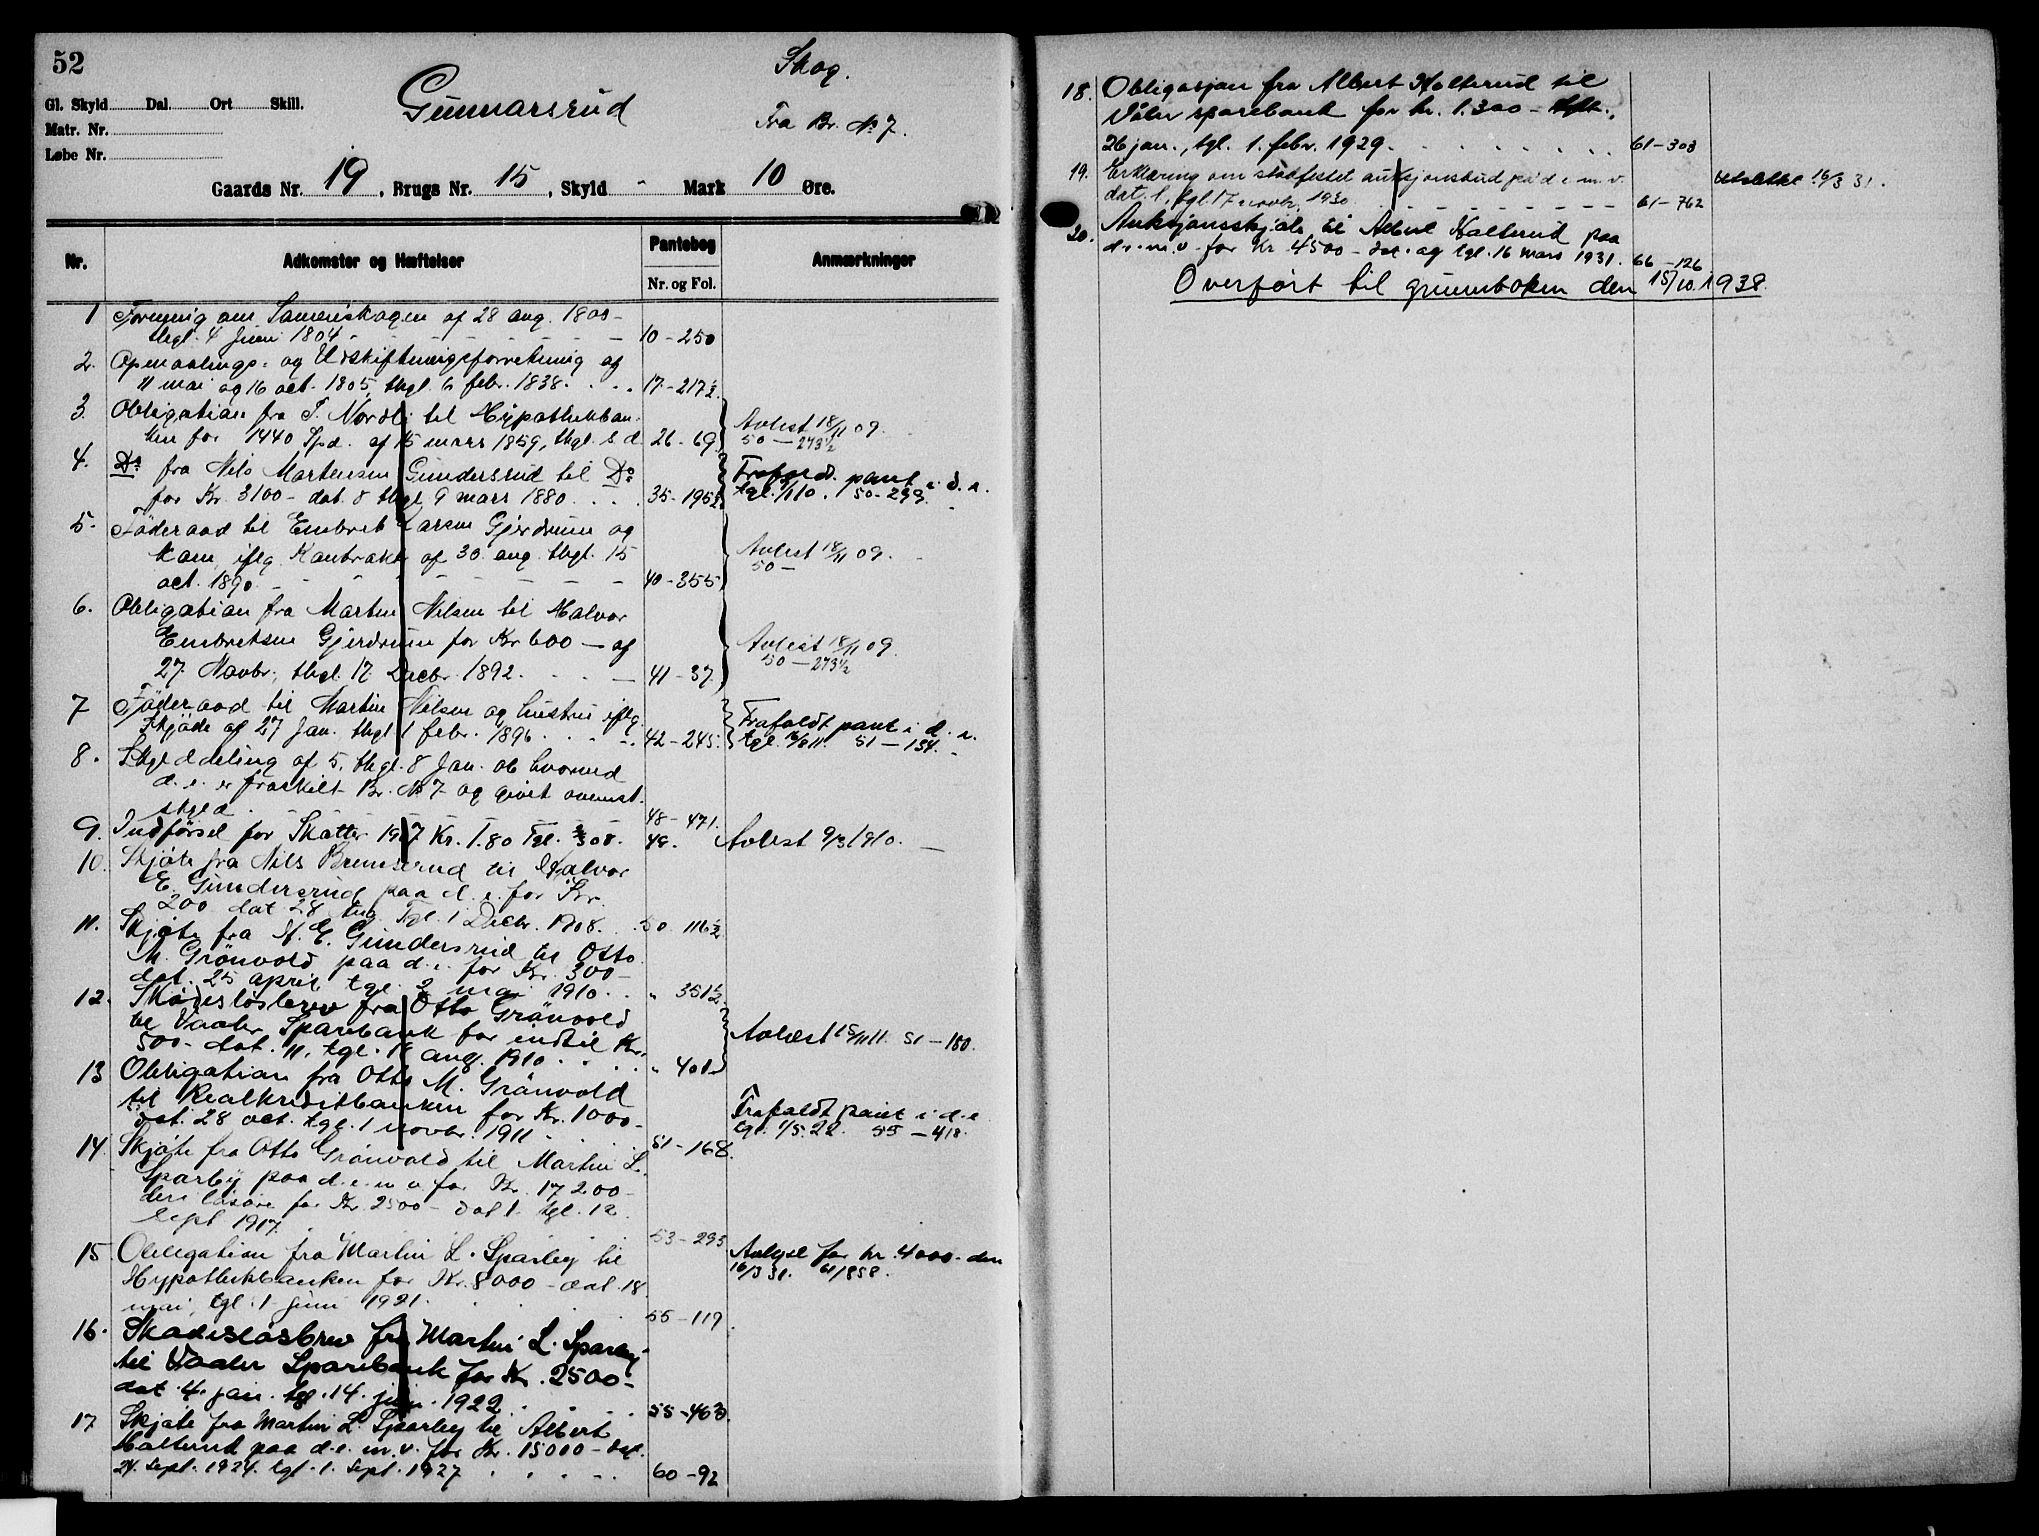 52
Gl. Skyld Dal. Ort Skill.
Matr. Nr.
Løbe Nr.
Gunnarsrud
Skog.
Fra Br. No 7.
Gaards Nr. 19, Brugs Nr. 15, Skyld " Mark 10 Øre.
Nr. Adkomster og Hæftelser Pantebog Anmærkninger
Nr. og Fol.
1 Forening om Sameieskogen af 28 aug. 1803 -
thgl. 4 Juni 1804 - 10-250
2. Opmaalings- og Udskiftningsforretning af
11 mai og 16 oct. 1805, thgl. 6 febr. 1838. 17-217½
3. Obligation fra T. Nordli til Hypothekban-
ken for 1440 Spd. af 15 mars 1859, thgl. s. d. 26-69. Avlest 18/11 09.
50-273½
4. Do fra Nils Martinsen Gundersrud til Do
for Kr. 3100- dat. 8 thgl. 9 mars 1880. 35-195½ Frafaldt pant i d. e.
tgl. 1/10. 50-299.
5. Föderaad til Embret Larsen Gjerdrum og
Kone iflg. Kontrakt af 30. aug. thgl. 15
oct. 1890. 40-355 Avlest 18/11 09.
50-
6. Obligation fra Martin Nilsen til Halvor
Embretsen Gjerdrum for Kr 600 - af
27 Novbr., thgl. 17 Decbr. 1892. 41-37 Avlest 18/11 09.
50-273½
7 Föderaad til Martin Nilsen og hustru iflg.
Skjöde af 27 Jan. thgl. 1 febr. 1896. 42-245. Frafaldt pant i d. e.
tgl. 16/8 11. 51-134.
8. Skylddeling af 5. thgl. 8 Jan. 06 hvorved
d. e. er fraskilt Br. No 7 og givet ovenst.
skyld. 48-471.
9. Indförsel for Skatter 1907 Kr. 1.80 Tgl. 2/3 08. 49. Avlest 9/3 1910.
10. Skjöte fra Nils Bremserud til Halvor
E. Gundersrud paa d. e. for Kr.
200 dat 28 aug. Tgl. 1 Decbr. 1908. 50 116½
11. Skjöte fra H. E. Gundersrud til Otto
M. Grönvold paa d. e. for Kr. 300-
dat. 25 april tgl. 2 mai 1910. " 351½
12. Skadeslösbrev fra Otto Grönvold
til Vaaler Sparebank for indtil Kr.
500- dat. 11, tgl. 18 aug. 1910. " 401 Avlest 15/11 11. 51-180.
13 Obligation fra Otto M. Grönvold
til Realkreditbanken for Kr. 1000-
dat. 28 oct. tgl. 1 novbr. 1911. 51-168. Frafaldt pant i d. e
tgl. 1/5. 22. 55-418.
14. Skjöte fra Otto Grönvold til Martin L.
Sparby paa d. e. m. v. for Kr. 17200-
deri lösöre for Kr. 2500- dat 1. tgl. 12
sept 1917. 53-293
15 Obligation fra Martin L. Sparby til
Hypothekbanken for Kr. 8000- dat. 18
mai, tgl. 1 Juni 1921. 55-119. Avlyst for kr. 4000- den
16/3 31. 61/858.
16. Skadeslösbrev fra Martin L. Sparby
til Vaaler Sparebank for Kr. 2500-
dat. 4. jan. tgl. 14. jan. 1922. 55-463.
17 Skjöte fra Martin L. Sparby til Albert
Halterud paa d. e. m. v. for Kr. 15000- dat.
24. sept. 1924. tgl. 1. sept. 1927 60-92
18. Obligasjon fra Albert Holterud til
Våler sparebank for kr. 1.300-
26 jan., tgl. 1. febr. 1929. 61-303
19. Erklæring om stadfestet auksjonsbud på d. e. m. v.
dat. 1, tgl. 17 novbr. 1930. 61-762 Utslettet 16/3 31.
20. Auksjonsskjöte til Albert Halterud paa
d. e. m. v. for Kr 4500- dat. og tgl. 16 mars 1931. 66-126
Overført til grunnboken den 15/10. 1938.